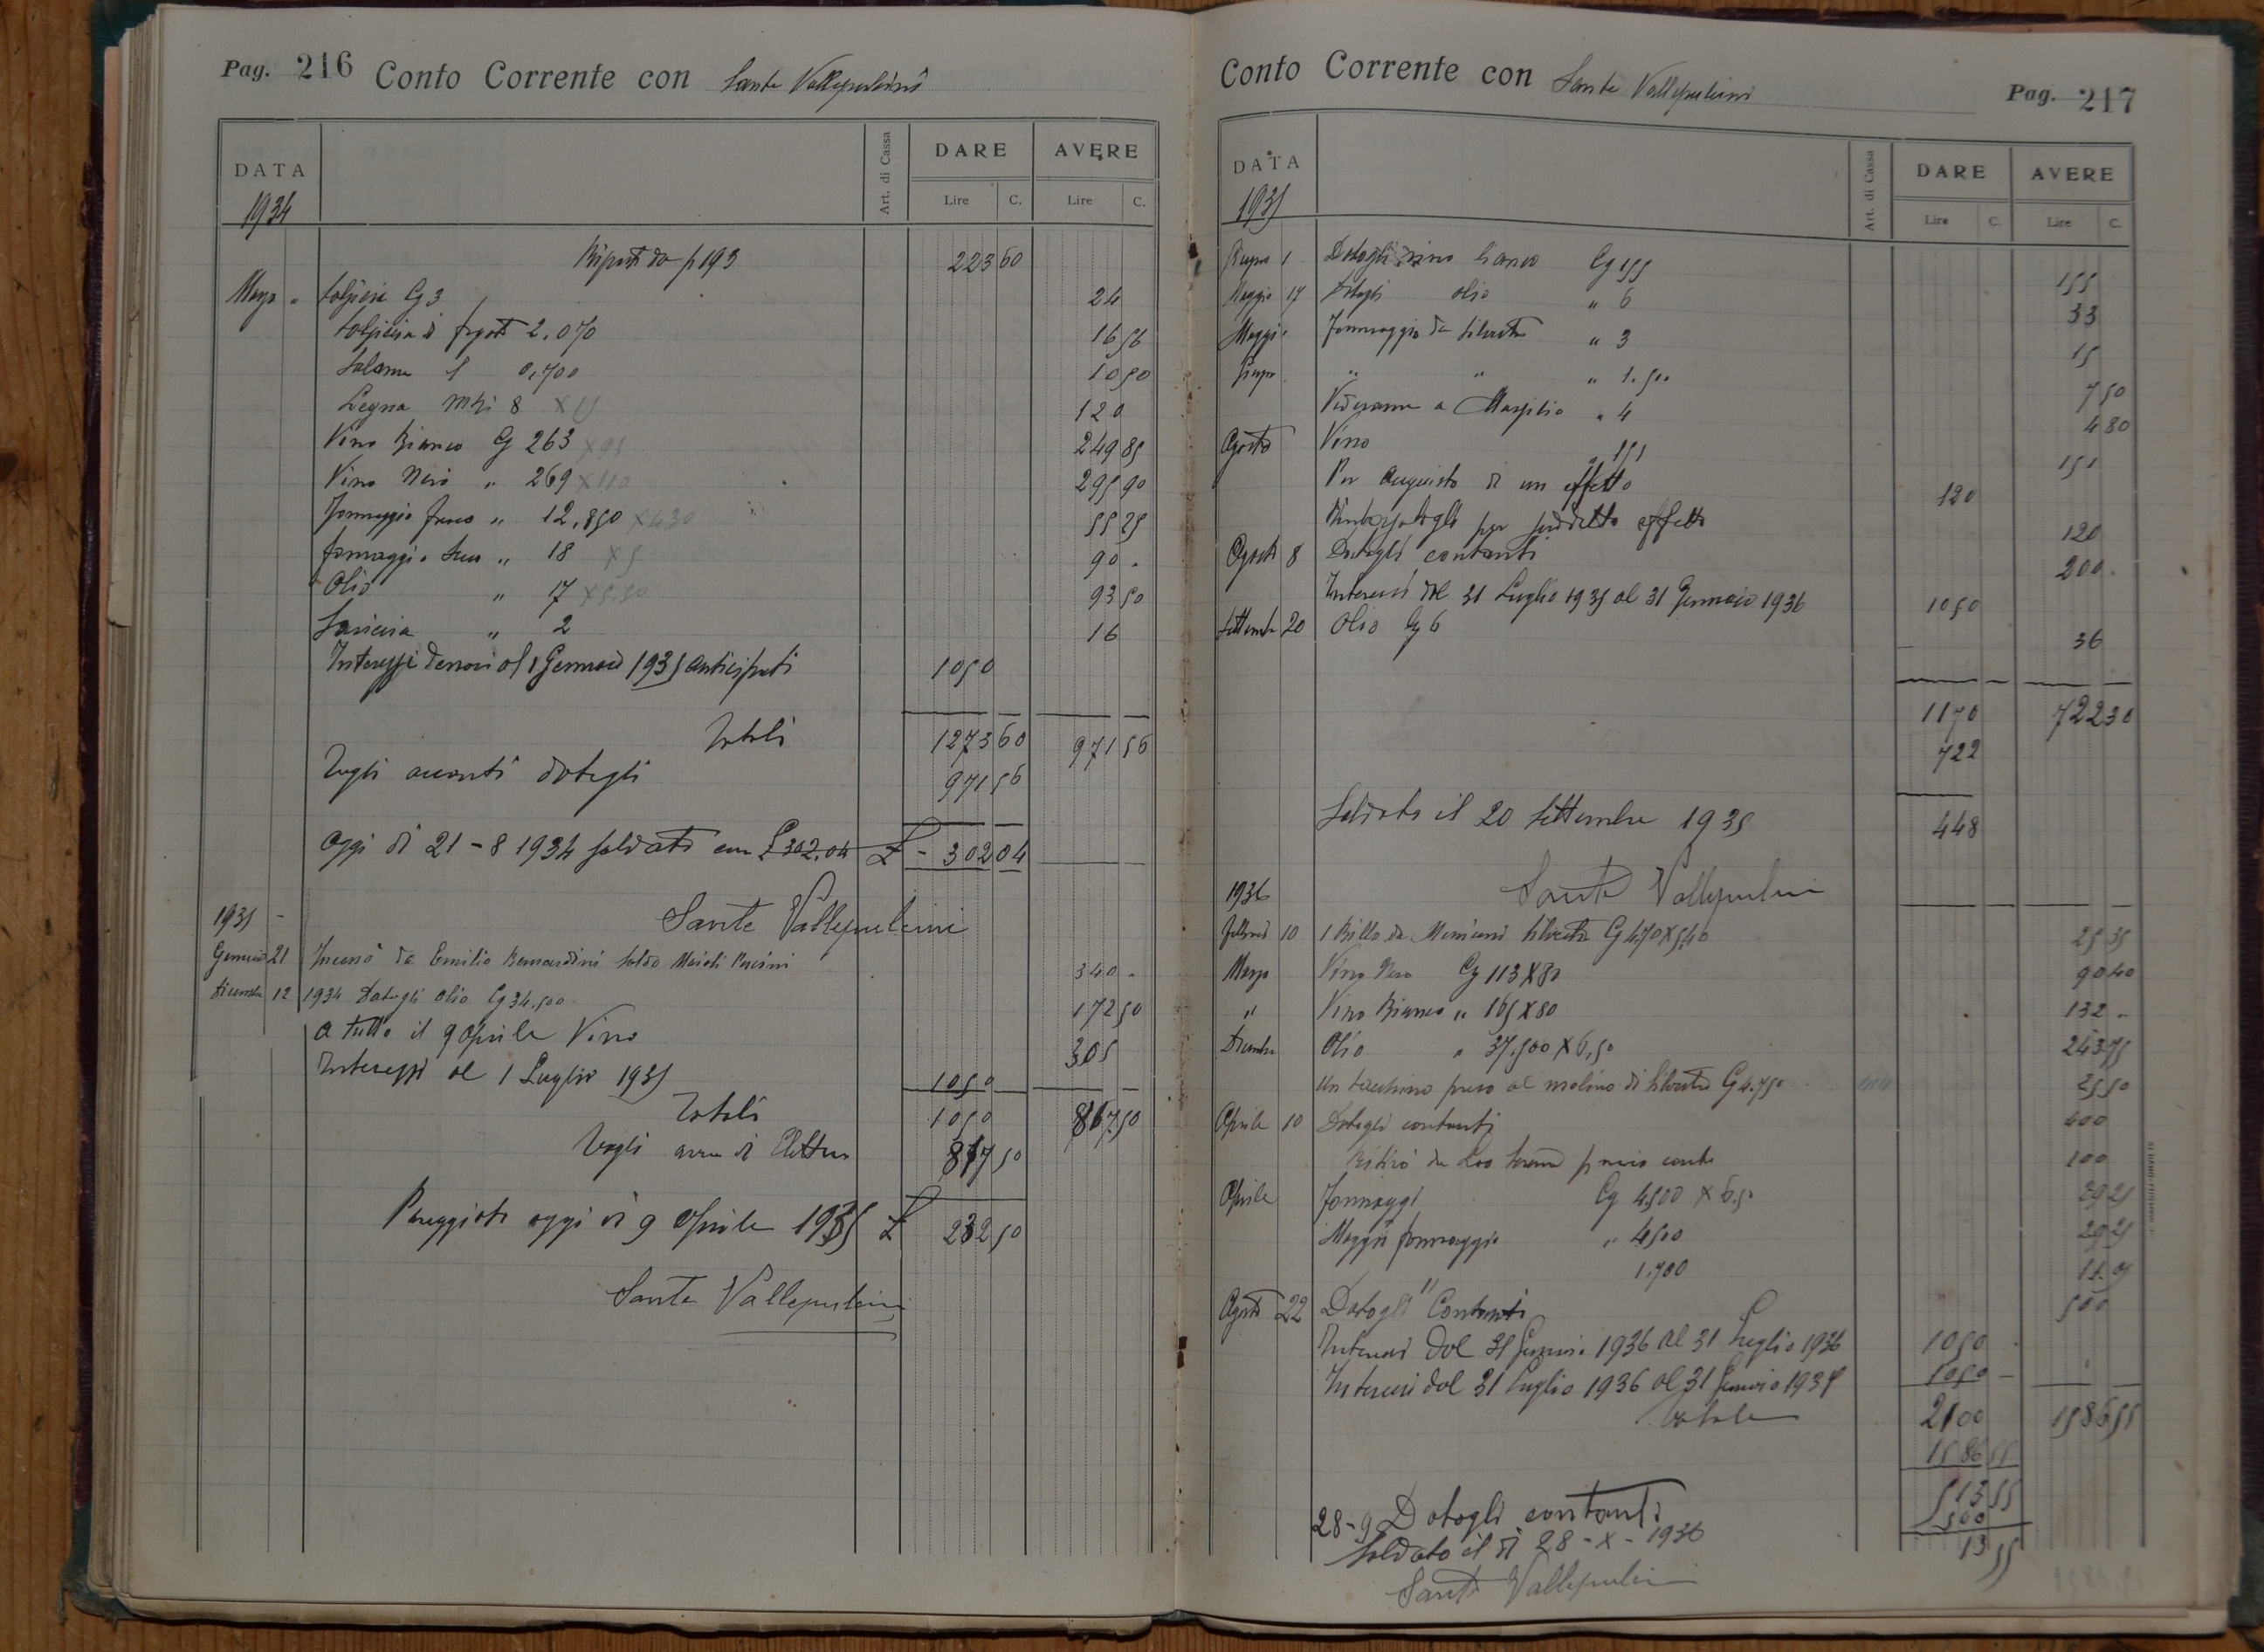 Pag. 216 Conto Corrente con Sante Vallepulcini
DATA Art. di Cassa DARE AVERE
1934 Lire C. Lire C.
Riporto da p 193 223 60
Marzo " Salsiccia Cg 3 24
Salsiccia di fegato 2,070 16 56
Salame 0,700 10 50
Legna Mtri 8 120
Vino Bianco Cg 263 x 95 249 85
Vino Nero " 269 x 110 295 90
Formaggio fresco " 12,850 x 4 30 55 25
formaggio secco " 18 x 5 90 .
Olio " 17 x 5.50 93 50
Salsiccia " 2 16
Interessi denari al 1 Gennaio 1935 anticipati 1050
Totali 1273 60 971 56
Togli acconti datogli 971 56
Oggi di 21 - 8 1934 saldato con £ 302,04 £ - 302 04
Sante Vallepulcini
1935 -
Gennaio 21 Incassò da Emilio Bernardini saldo 340 -
Dicembre 12 1934 Datogli olio Cg 34,500 172 50
a tutto il 9 Aprile Vino 305
Interessi al 1 Luglio 1935 1050
Totali 1050 817 50
Togli avere di 817 50
Pareggiato oggi di 9 Aprile 1935 £ 232 50
Sante Vallepulcini
Conto Corrente con Sante Vallepulcini Pag. 217
DATA Art. di Cassa DARE AVERE
1935 Lire C. Lire C.
Giugno 1 Datogli vino bianco Cg 155 155
Maggio 17 Datogli olio " 6 33
Maggio Formaggio da Silvestro " 3 15
Giugno " " " 1.500 7 50
a " 4 4 80
Agosto Vino " 151 151
Per acquisto di un effetto 120
per suddetto effetto 120
Agosto 8 Datogli contanti 200 .
Interessi dal 31 Luglio 1935 al 31 Gennaio 1936 1050
Settembre 20 Olio Cg 6 36
1170 722 30
722
Saldato il 20 Settembre 1935 448
Sante Vallepulcini
1936
Febbraio 10 1 Billo da Silvestro Cg 4,70 x 5,40 25 35
Marzo Vino Nero Cg 113 x 80 90 40
" Vino Bianco " 165 x 80 132 -
Dicembre Olio " 37,500 x 6,50 243 75
Un tacchino preso al molino di Silvestro Cg 4.750 25 50
Aprile 10 Datogli contanti 400
Ritirò da p mio conto 100
Aprile Formaggi Cg 4,500 x 6.50 29 25
Maggio formaggio " 4500 29 25
1.700
Agosto 22 Datogli Contanti 500
Interessi dal 31 Gennaio 1936 al 31 Luglio 1936 1050
Interessi dal 31 Luglio 1936 al 31 Gennaio 1937 1050
Totale 2100 1586 55
1586 55
513 55
28-9 Datogli contanti 500
Saldato il di 28 - X - 1936 13 55
Sante Vallepulcini